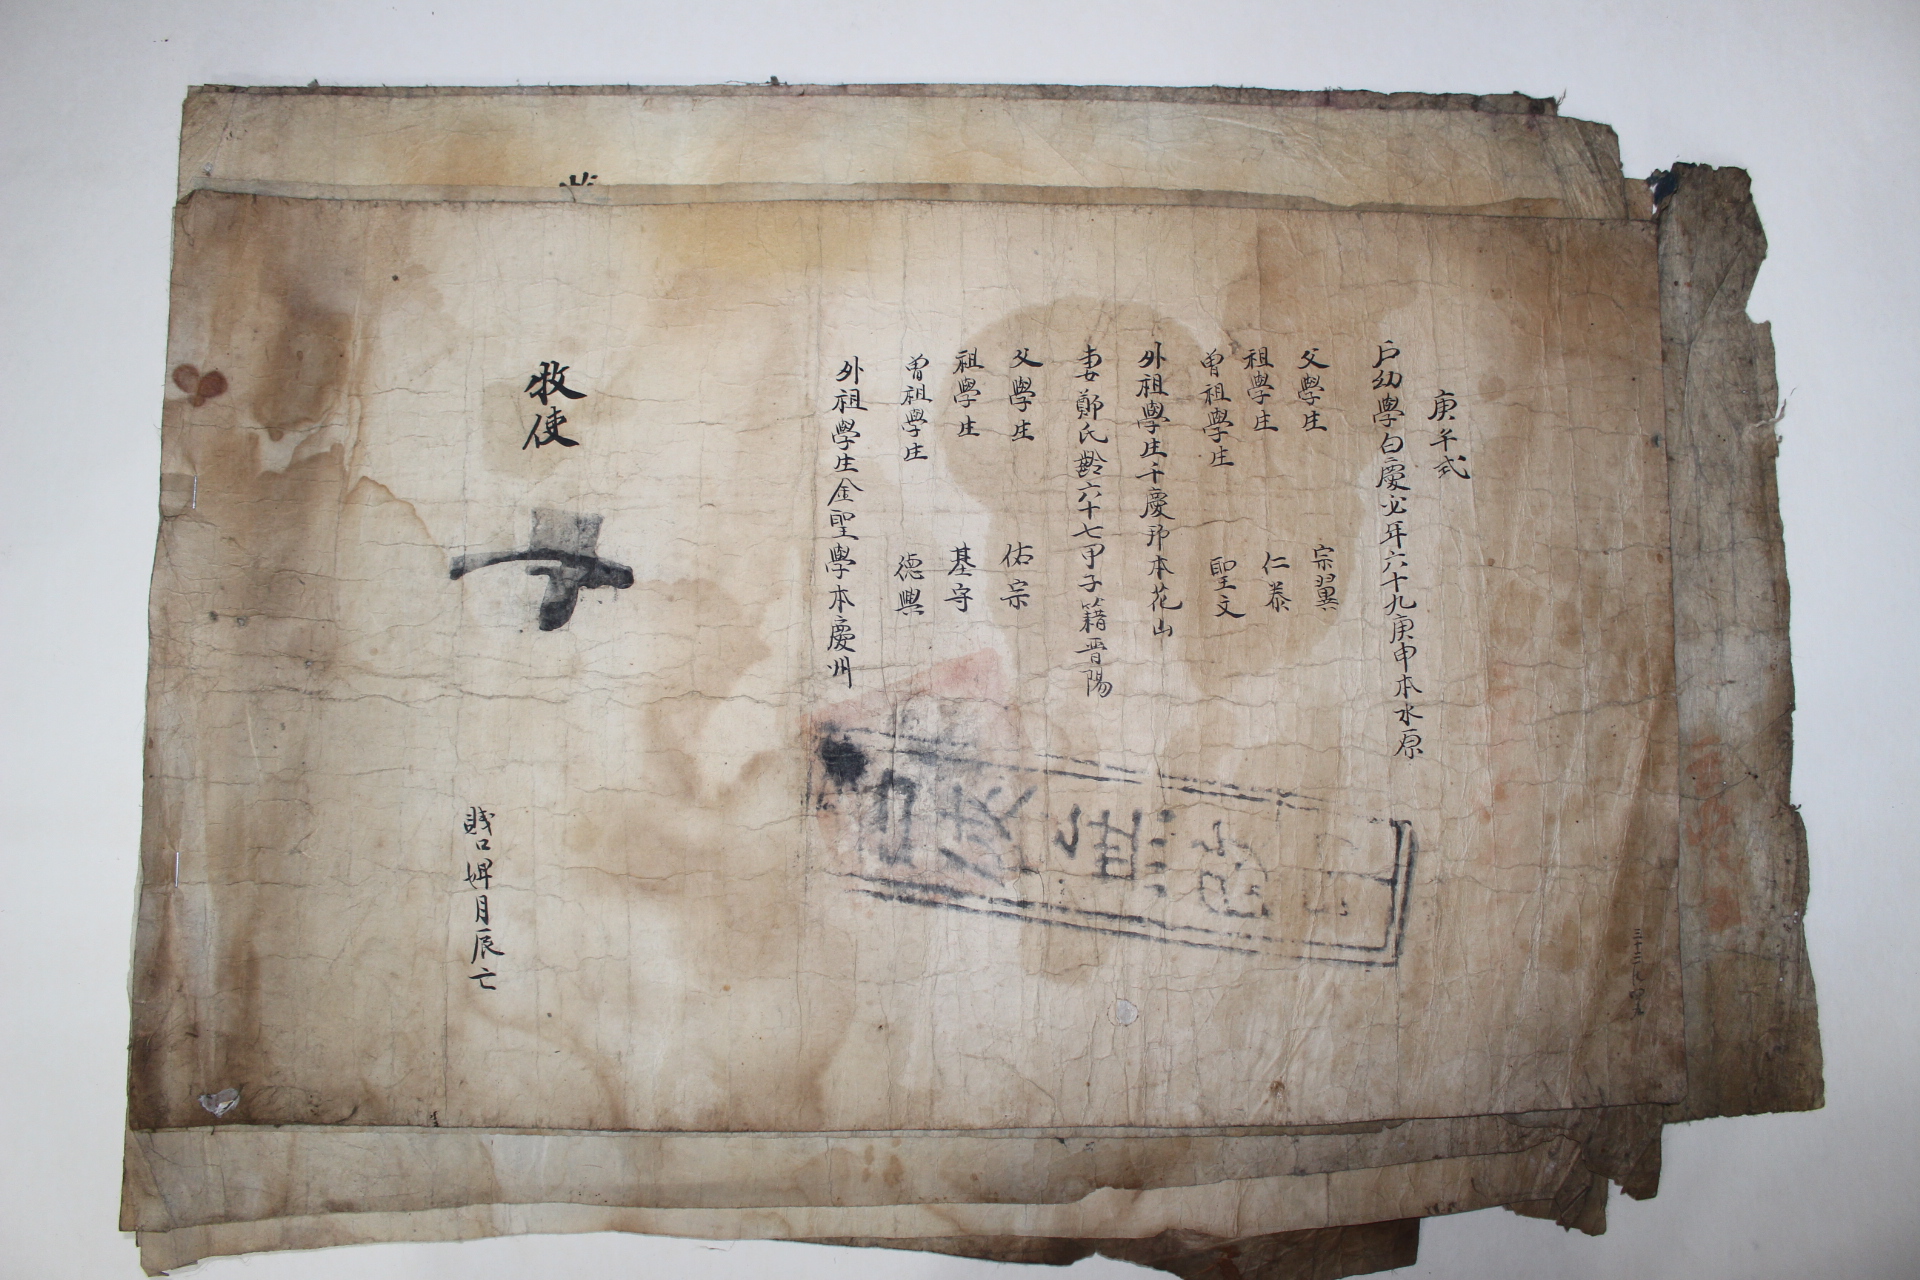 庚午式
戶幼學白慶必年六十九庚申本水原
父學生 宗翼
祖學生 仁泰
曾祖學生 聖文
外祖學生千慶邦本花山
妻鄭氏齡六十七甲子籍晋陽
父學生 佑宗
祖學生 基守
曾祖學生 德興
外祖學生金聖學本慶州
牧使
賤口婢月辰亡